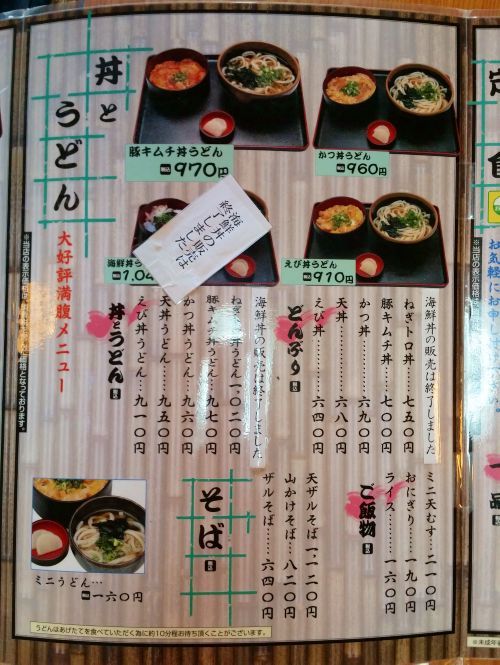 丼とうどん
大好評満腹メニュー
豚キムチ丼うどん
税込 970円
かつ丼うどん
税込 960円
海鮮丼の販売は
終了しました
海鮮丼う
税込 1,04
えび丼うどん
税込 910円
どんぶり 税込
海鮮丼の販売は終了しました
ねぎトロ丼…七五〇円
豚キムチ丼…七〇〇円
かつ丼………七一〇円
天丼…………六八〇円
えび丼………六四〇円
丼とうどん 税込
海鮮丼の販売は終了しました
ねぎ 丼うどん一〇二〇円
豚キムチ丼うどん…九七〇円
かつ丼うどん……九六〇円
天丼うどん………九五〇円
えび丼うどん……九一〇円
ご飯物 税込
ミニ天むす…二一〇円
おにぎり……一九〇円
ライス………一六〇円
そば 税込
天ザルそば…一、一二〇円
山かけそば…八二〇円
ザルそば……六四〇円
ミニうどん…
税込 一六〇円
うどんはあげたてを食べていただく為に約10分程お待ち頂くことがございます。
お気軽に
※当店の表示価格